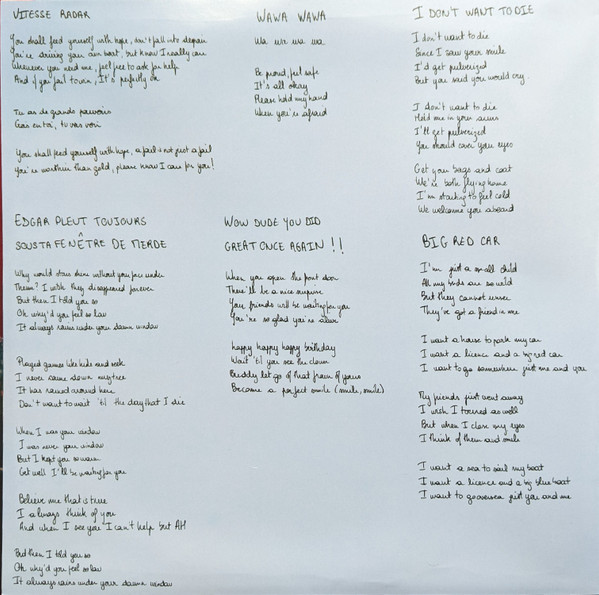 VITESSE RADAR
You shall feed yourself with hope, don't fall into despair
You're driving your own boat, but know I really care
Whenever you need me, feel free to ask for help
And if you fail to win, It's perfectly ok
Tu as de grands pouvoirs
Crois en toi, tu vas voir
You shall feed yourself with hope, a fail is not just a fail
You're worthier than gold, please know I care for you!
WAWA WAWA
Wa wa wa wa
Be proud, feel safe
It's all okay
Please hold my hand
When you're afraid
I DON'T WANT TO DIE
I don't want to die
Since I saw your smile
I'd get pulverized
But you said you would cry.
I don't want to die
Hold me in your arms
I'll get pulverized
You should cover your eyes
Get your bags and coat
We're both flying home
I'm starting to feel cold
We welcome you aboard
EDGAR PLEUT TOUJOURS
SOUS TA FENÊTRE DE MERDE
Why would stars shine without you free under
Them? I wish they disappeared forever
But then I told you so
Oh why'd you feel so low
It always rains under your damn window
Played games like hide and seek
I never came down my tree
It has rained around here
Don't want to wait 'til the day that I die
When I was your window
I was never your window
But I kept you so warm
Get well I'll be waiting for you
Believe me that is true
I always think of you
And when I see you I can't help but AH
But then I told you so
Oh why'd you feel so low
It always rains under your damn window
WOW DUDE YOU DID
GREAT ONCE AGAIN !!
When you open the front door
There'll be a nice surprise
Your friends will be waiting for you
You're so glad you're alive
happy happy happy birthday
Wait 'til you see the clown
Buddy let go of that frown of yours
Become a perfect smile (smile, smile)
BIG RED CAR
I'm just a small child
All my birds are so wild
But they cannot
They've got a friend in me
I want a house to park my car
I want a licence and a big red car
I want to go somewhere just me and you
My friends just went away
I wish I as well
But when I close my eyes
I think of them and smile
I want a sea to sail my boat
I want a licence and a big blue boat
I want to go oversea just you and me